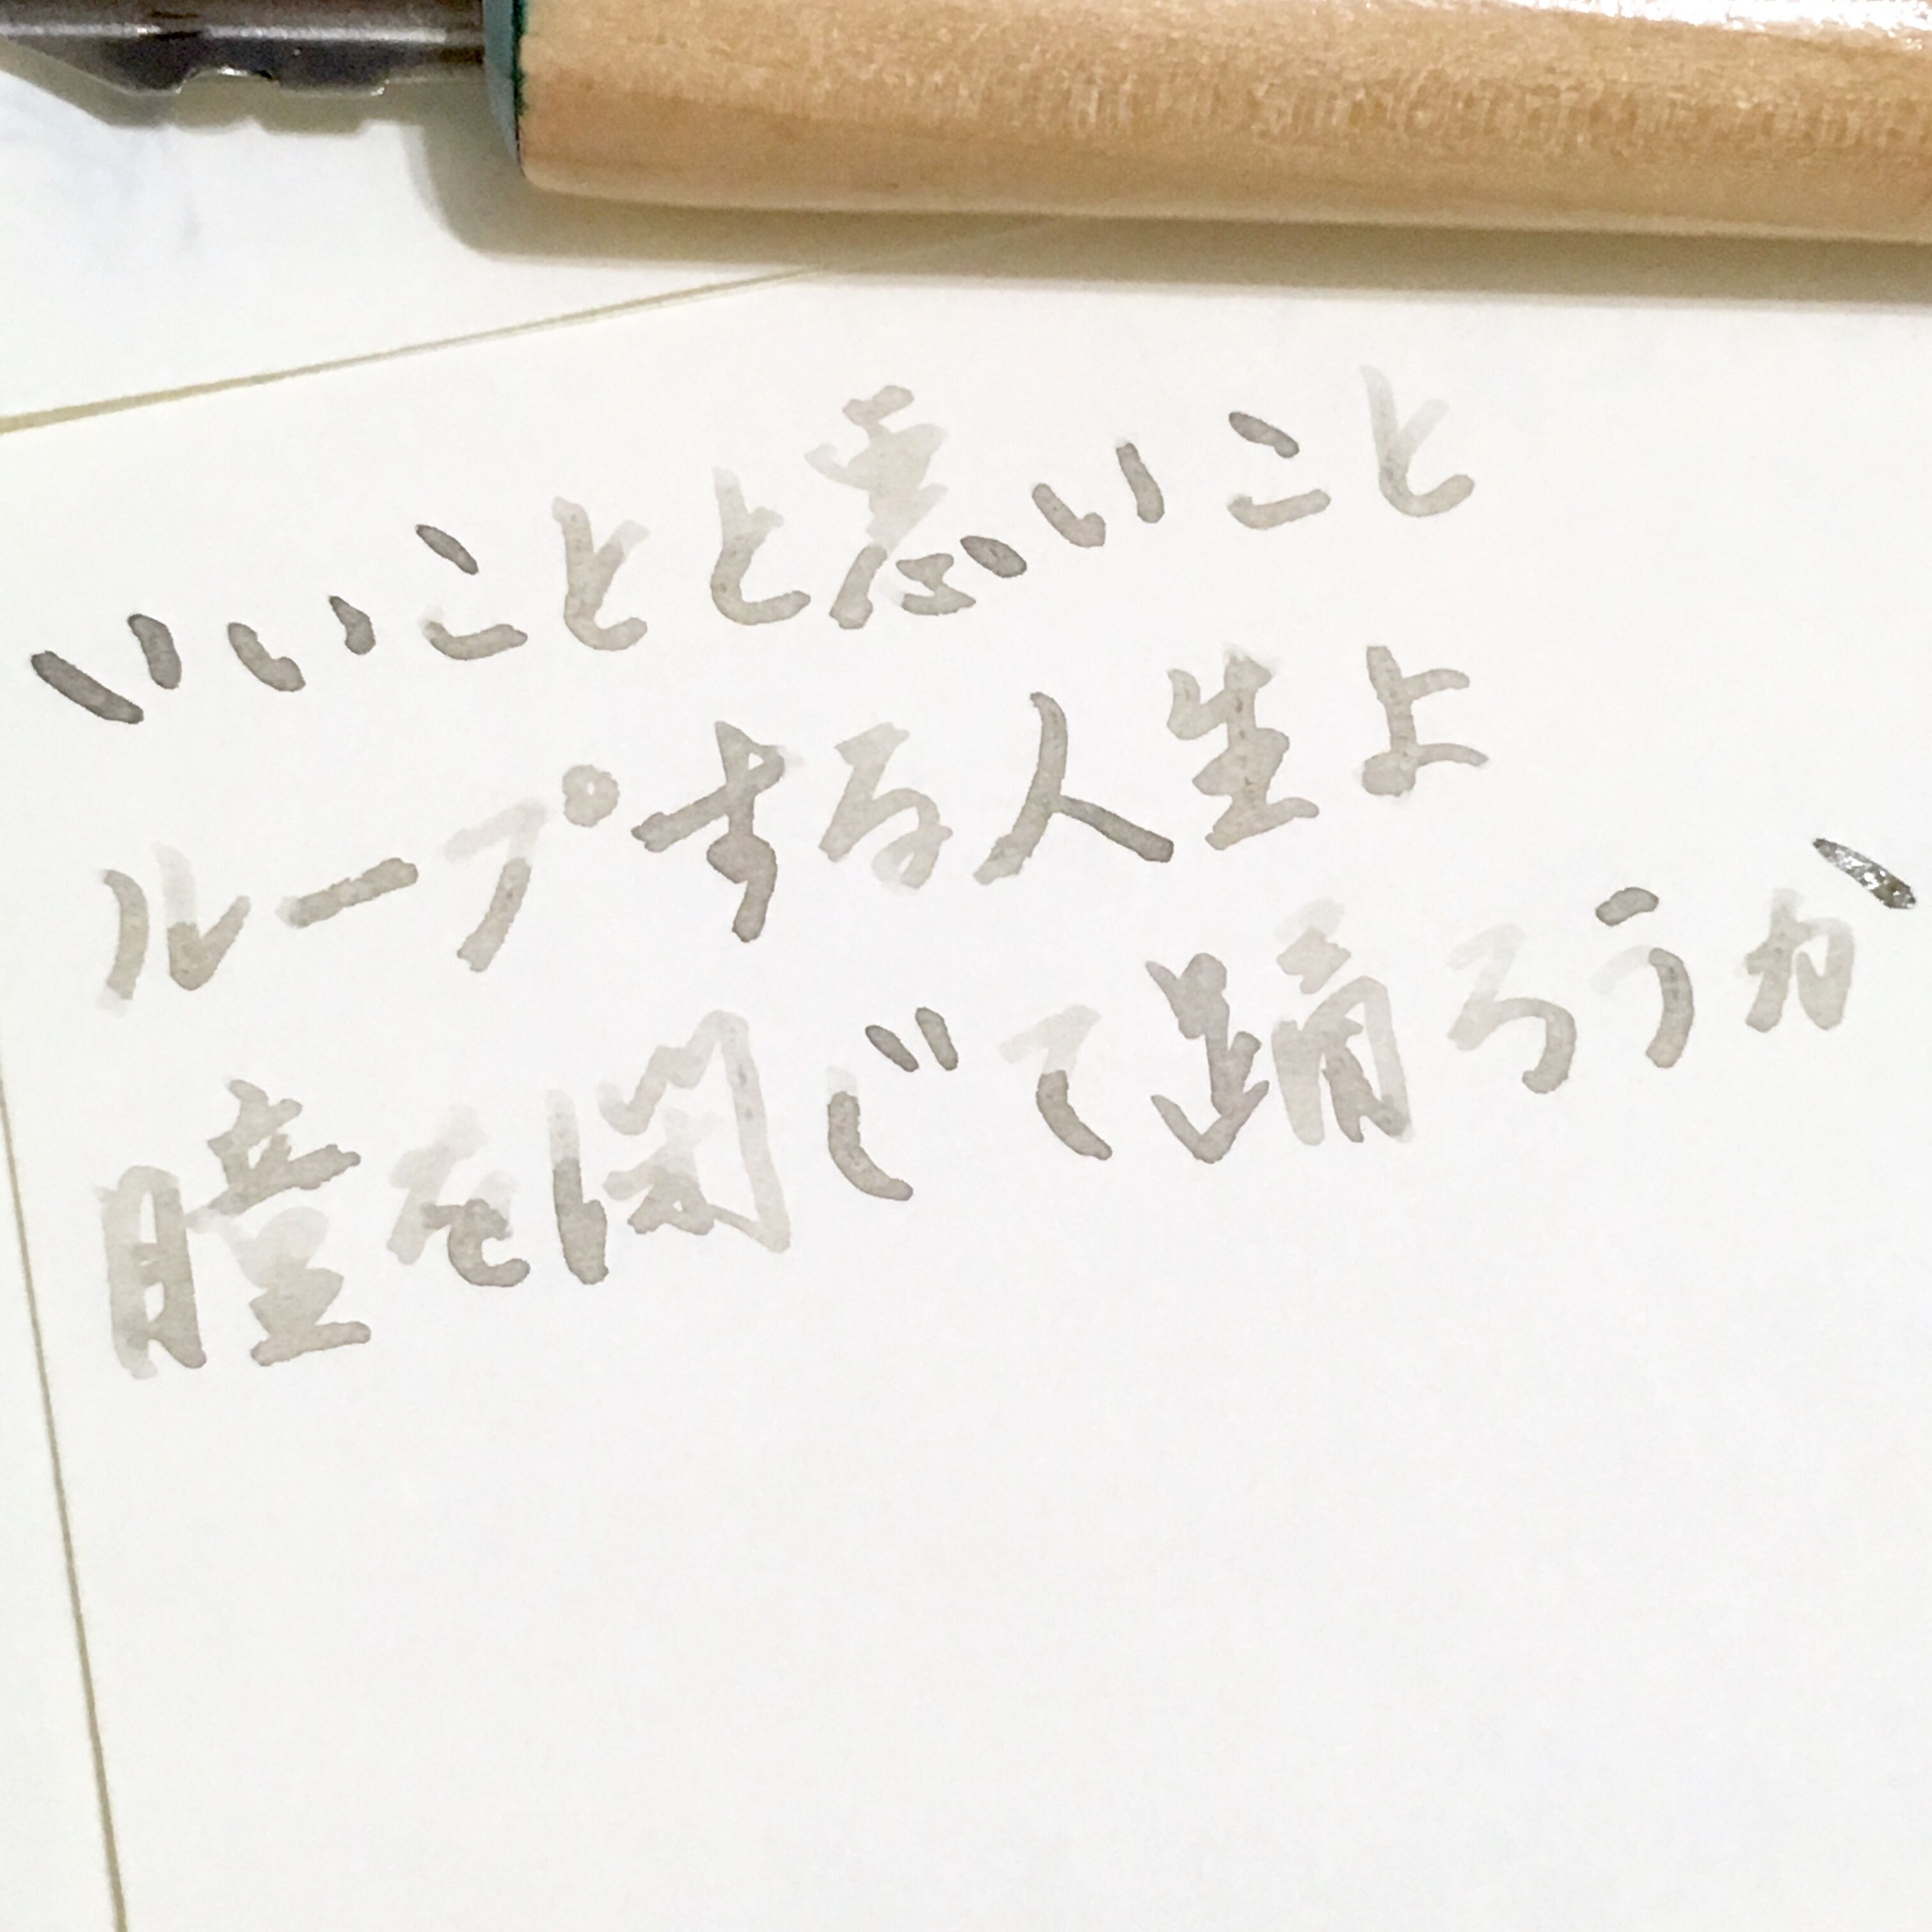 いいことと悪いこと
ループする人生よ
瞳を閉じて踊ろうか